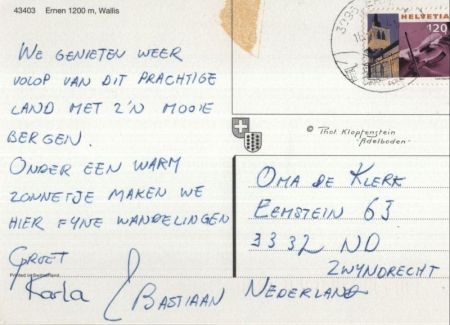 43403 Ernen 1200 m, Wallis
WE GENIETEN WEER
VOLOP VAN DIT PRACHTIGE
LAND MET Z'N MOOIE
BERGEN.
ONDER EEN WARM
ZONNETJE MAKEN WE
HIER FYNE WANDELINGEN
GROET
Karla
BASTIAAN
Printed in Switzerland
HELVETIA
120
© Phot. Klopfenstein
Adelboden
OMA DE KLERK
EEMSTEIN 63
3332 ND
ZWYNDRECHT
NEDERLAND